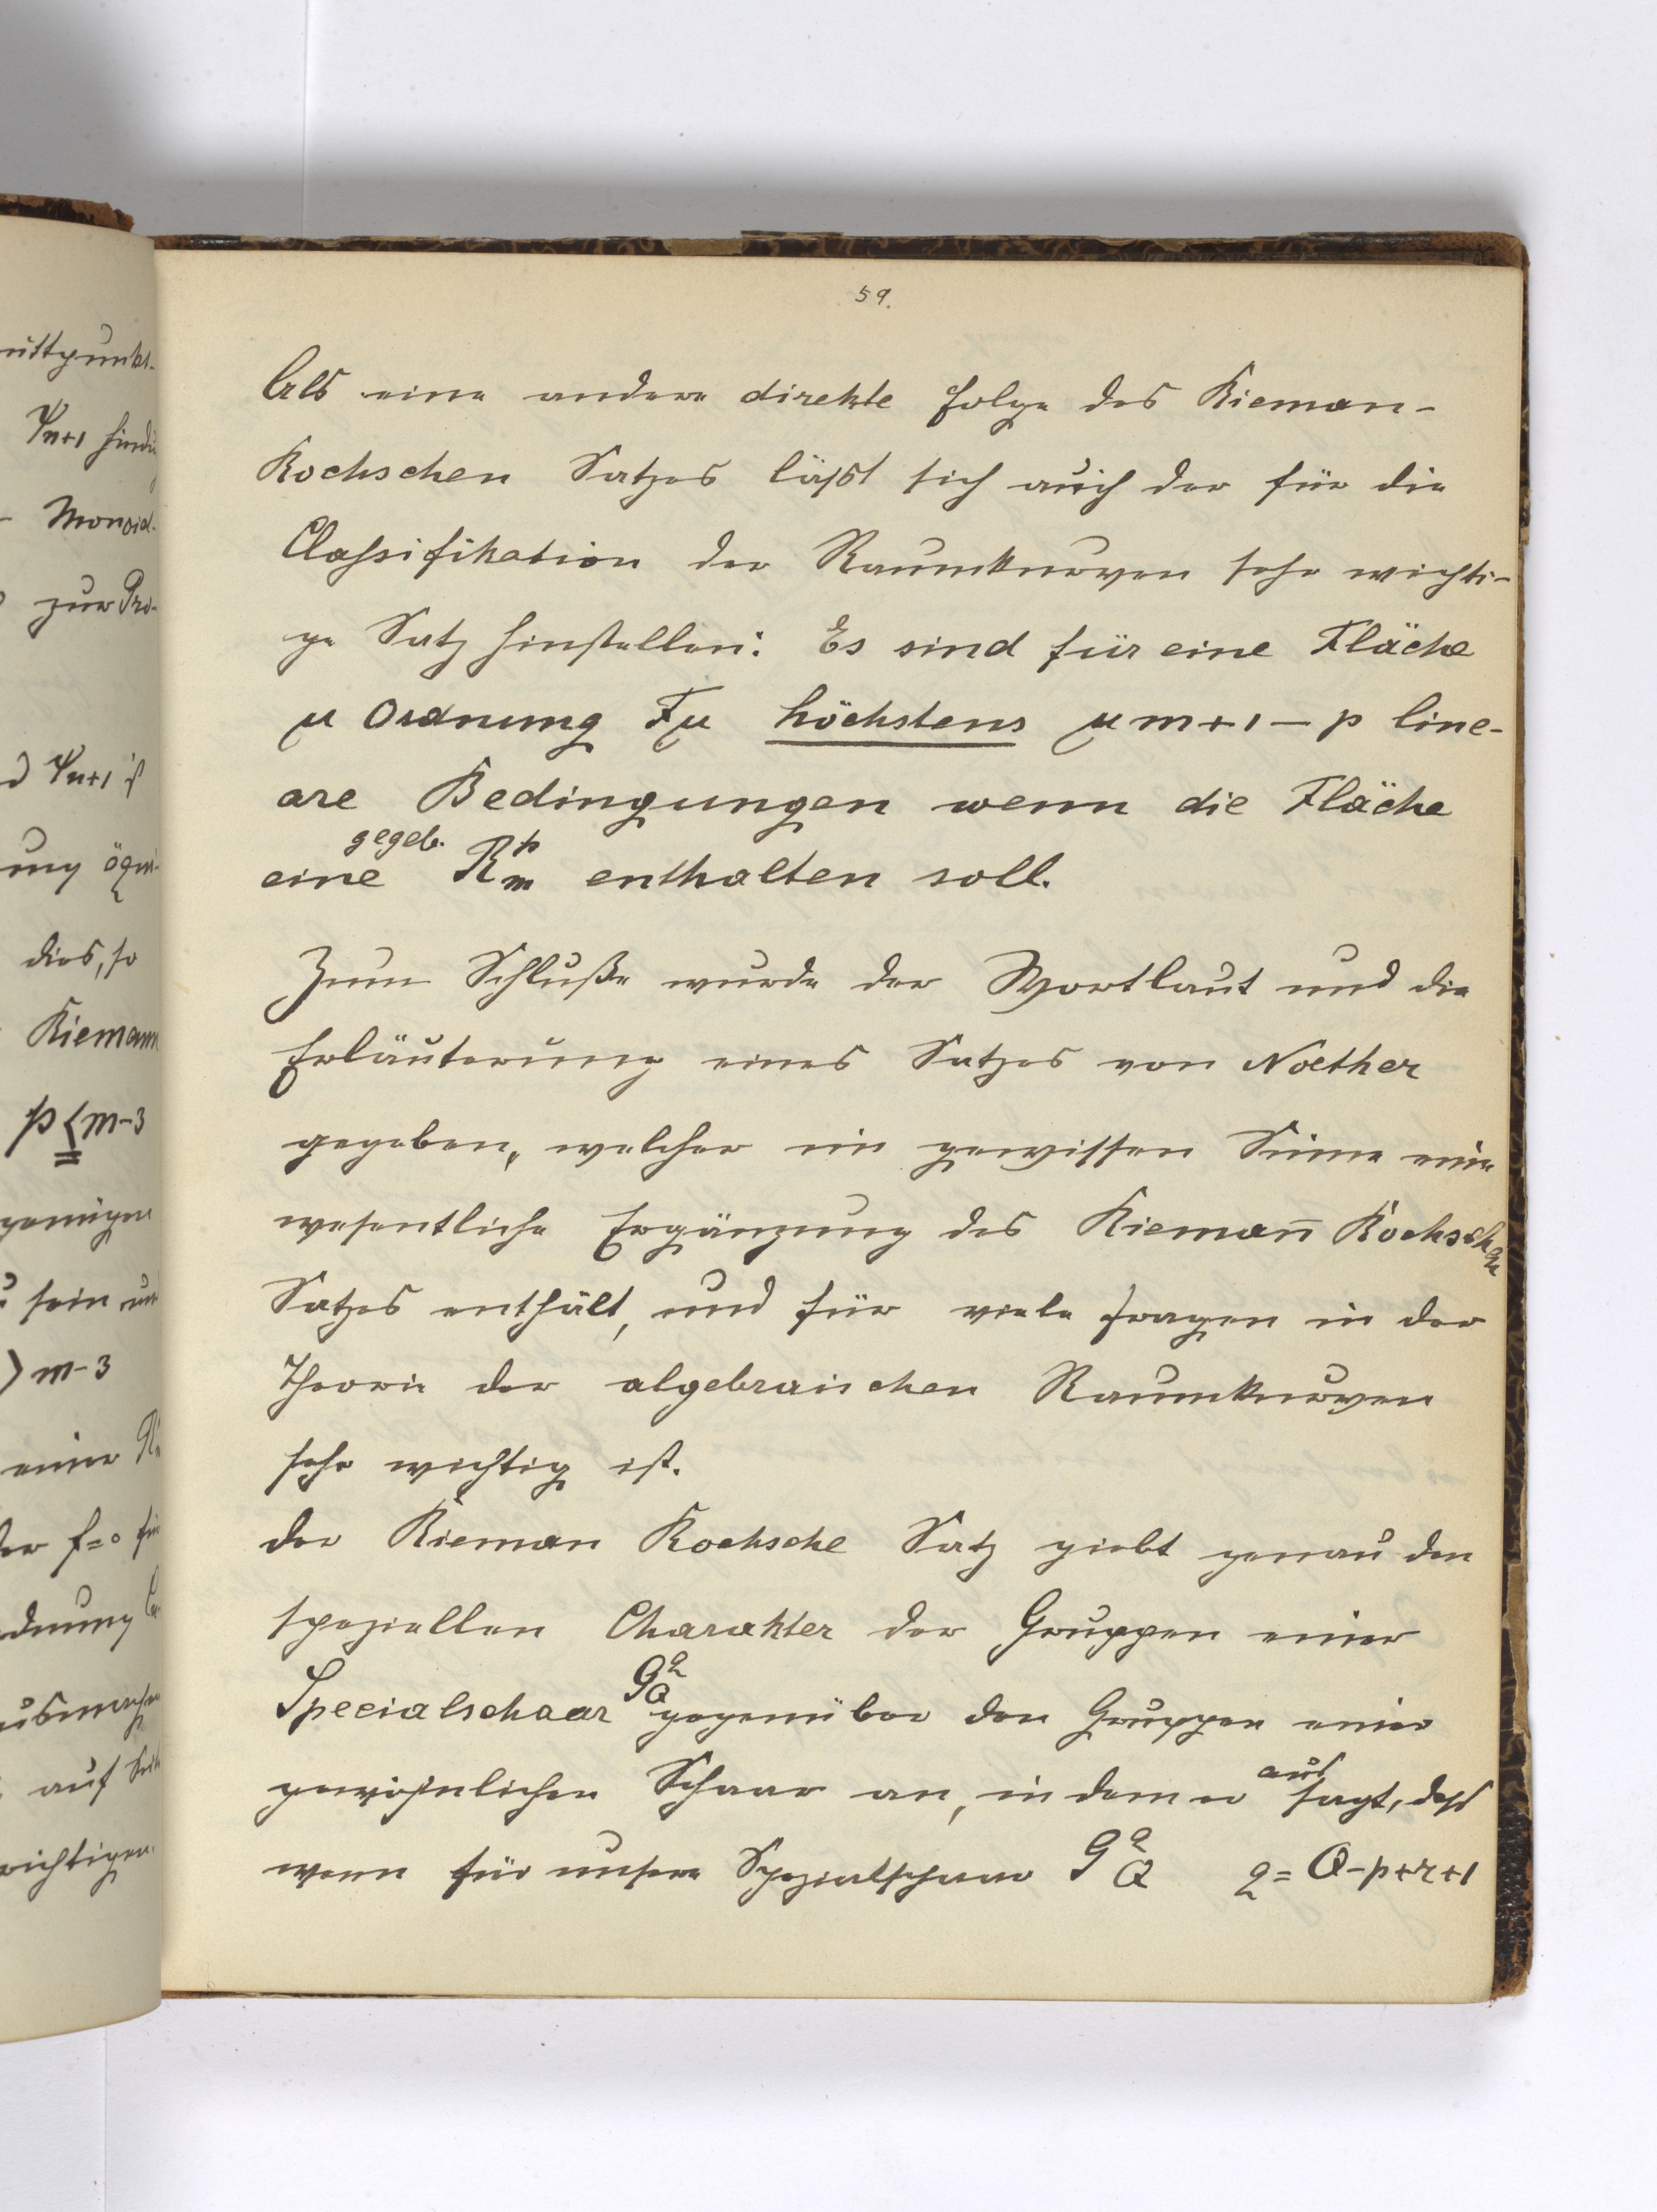 59.
Als eine andere direkte Folge des Rieman-
Rochschen Satzes läßt sich auch der für die
Classifikation der Raumkurven sehr wichti-
ge Satz hinstellen: Es sind für eine Fläche
μ Ordnung Fμ höchstens μm+1-p line-
are Bedingungen wenn die Fläche
eine gegeb. R^p_m enthalten soll.
Zum Schluße wurde der Wortlaut und die
Erläuterung eines Satzes von Noether
gegeben, welcher im gewissen Sinne eine
wesentliche Ergänzung des Riemañ Rochschen
Satzes enthält, und für viele Fragen in der
Theorie der algebraischen Raumkurven
sehr wichtig ist.
Der Rieman Rochsche Satz giebt genau den
speziellen Charakter der Gruppen einer
Specialschaar g^q_Q gegenüber den Gruppen einer
gewöhnlichen Schaar an, indem er aussagt, daß
wenn für unsere Spezialschaar g^q_Q q = Q-p+r+1
ψn+1
Monoid.
zur Pro-
ψn+1 ist
dies, so
Riemann
p ≤ m-3
sein und
> m-3
einer
f=0
auf
wichtigen